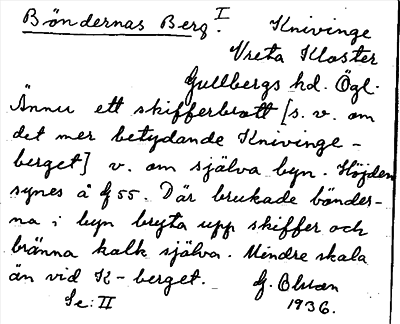 Böndernas Berg. I Knivinge
Vreta Kloster
Gullbergs hd. Ögl.
Ännu ett skifferbrott [s. v. om
det mer betydande Knivinge-
berget] v. om själva byn. Höjden
synes å G 55. Där brukade bönder-
na i byn bryta upp skiffer och
bränna kalk själva. Mindre skala
än vid K-berget. G. Olsson
Se: II 1936.